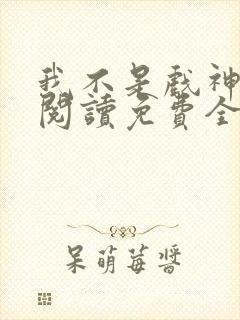 我不是戲神
閱讀免費全
呆萌莓醬